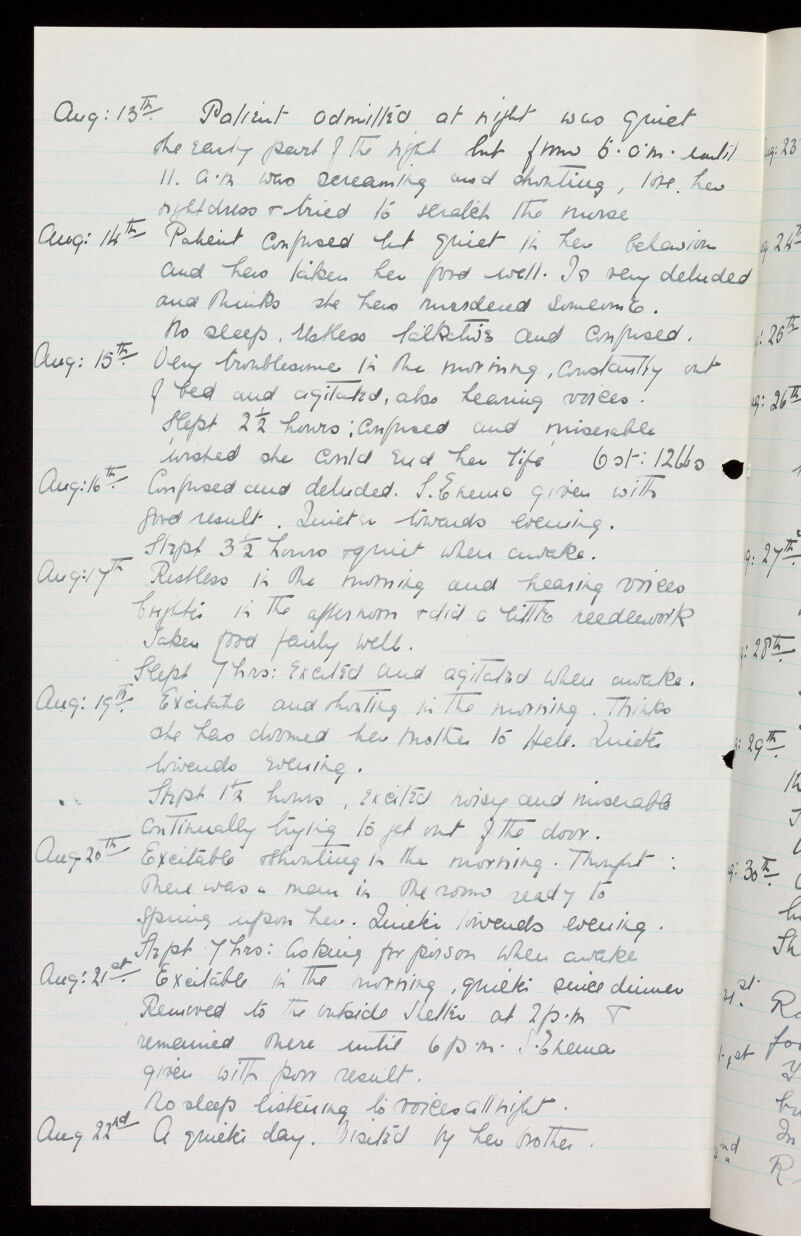 Aug: 13th. Patient admitted at night was quiet
the early part of the night but from 5. a.m. until
11. a.m was screaming and shouting, tore her
nightdress & tried to scratch the nurse
Aug: 14th Patient confused but quiet in her behaviour
and has taken her food well. Is very deluded
and thinks she has murdered someone.
No sleep, restless talkative and confused.
Aug: 15th. Very troublesome in the morning, constantly out
of bed and agitated, also hearing voices.
Slept 2½ hours; confused and miserable
'wished she could end her life' 6st: 12lbs
Aug: 16th. Confused and deluded. S. Enema given with
good result. Quieter towards evening.
Slept 3½ hours & quiet when awake.
Aug: 17th Restless in the morning and hearing voices
brighter in the afternoon & did a little needlework
Taken food fairly well.
Slept 7 hrs: Excited and agitated when awake.
Aug: 19th. Excitable and shouting in the morning. Thinks
she has doomed her mother to Hell. Quieter
towards evening.
Slept 1½ hours, excited noisy and miserable
continually trying to get out of the door.
Aug 20th Excitable & shouting in the morning. Thought :
there was a man in the room ready to
spring upon her. Quieter towards evening.
Slept 7 hrs: asking for poison when awake
Aug: 21st. Excitable in the morning, quieter since dinner
Removed to the outside shelter at 2 p.m &
remained there until 6 p.m. S. Enema
given with poor result.
No sleep listening to voices all night.
Aug 22nd A quieter day. Visited by her brother.
23
24th
25th
26th
27th
28th
29th
30th
31st.
1st
nd